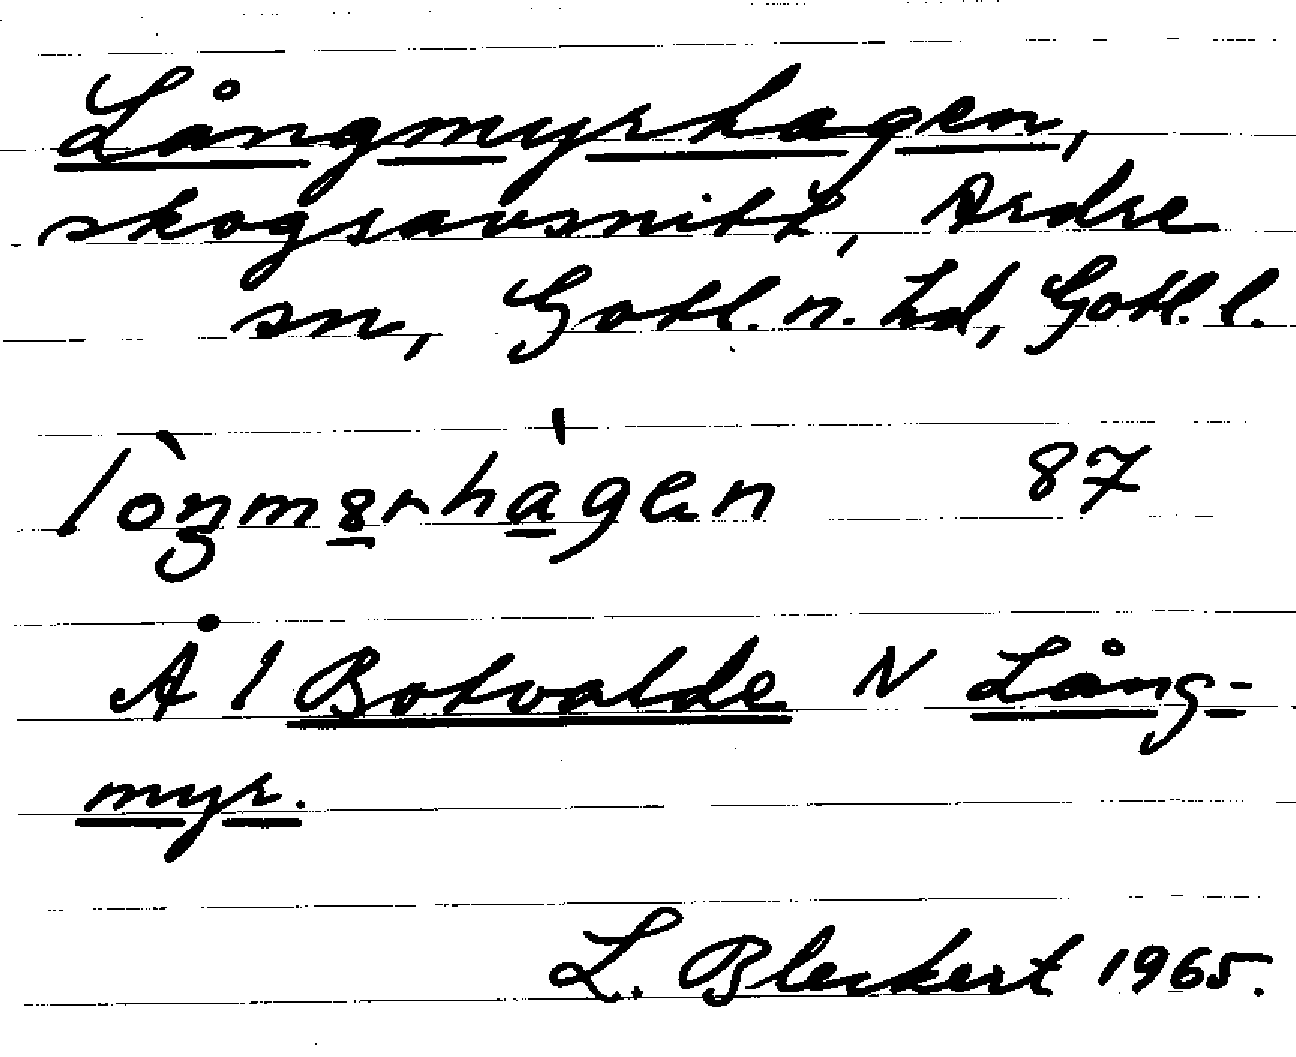 Långmyrhagen,
skogsavsnitt, Ardre
sn, Gotl. n. hd, Gotl. l.
lòŋmȣrhàgen 87
Å 1 Botvalde N Lång-
myr.
L. Bleckert 1965.